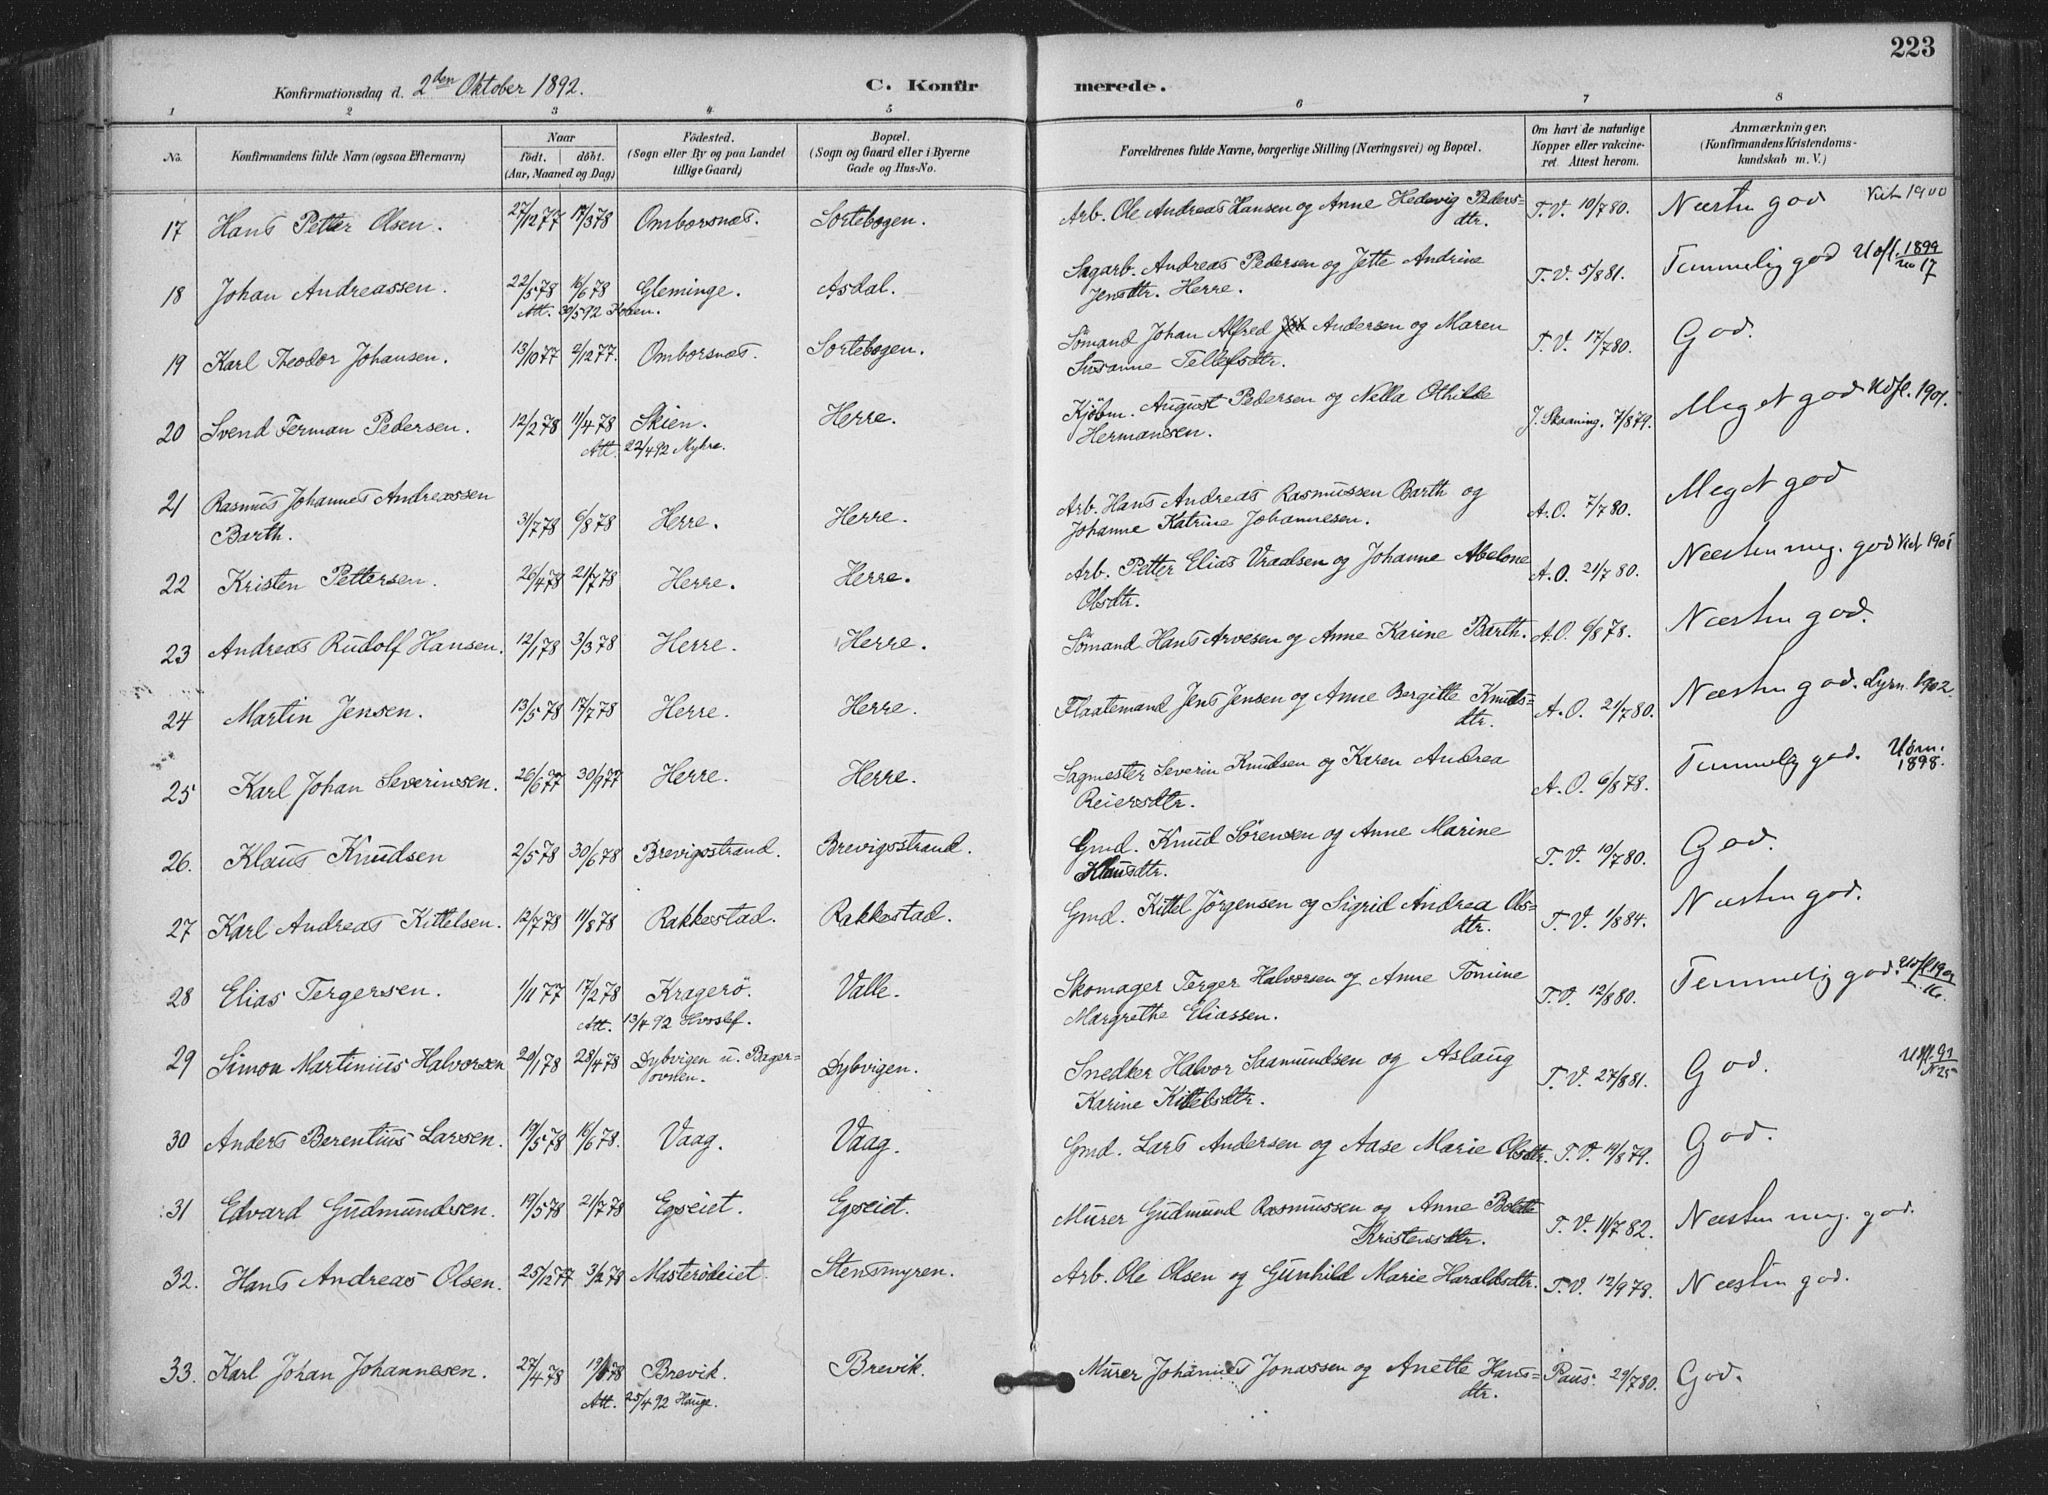 223
Konfirmationsdag d. 2den Oktober 1892.
C. Konfirmerede.
1 2 3 4 5 6 7 8
No. Konfirmandens fulde Navn (ogsaa Efternavn) Naar født. døbt. (Aar, Maaned og Dag) Fødested. (Sogn eller By og paa Landet tillige Gaard) Bopæl. (Sogn og Gaard eller i Byerne Gade og Hus-No. Forældrenes fulde Navne, borgerlige Stilling (Næringsvei) og Bopæl. Om havt de naturlige Kopper eller vakcineret. Attest herom. Anmærkninger. (Konfirmandens Kristendomskundskab m. V.)
17 Hans Petter Olsen. 27/12 77 17/3 78 Omborsnæs. Sortebogen. Arb. Ole Andreas Hansen og Anne Hedevig Peders=
dtr. T. V. 10/7 80. Næsten god 1900
18 Johan Andreassen. 22/5 78 16/6 78 Gleminge. Asdal. Sagarb. Andreas Pedersen og Jette Andrine
Jensdtr. Herre. T. V. 5/8 81. Temmelig god Udfl. 1899 no 17
Att. 30/5 92
19 Karl Theodor Johansen. 13/10 77 2/12 77. Omborsnæs. Sortebogen. Sømand Johan Alfred Andersen og Maren
Susanne Tellefsdtr. T. V. 17/7 80. God.
20 Svend Ferman Pedersen. 12/2 78 11/4 78 Skien. Herre. Kjøbm. August Pedersen og Nella Othilde
Hermansen. J. Skaaning. 7/8 79. Meget god Udfl. 1901.
Att. 22/4 92 Myhre.
21 Rasmus Johannes Andreassen
Barth. 31/7 78 6/8 78 Herre. Herre. Arb. Hans Andreas Rasmussen Barth og
Johanne Katrine Johannesen. A. O. 7/7 80. Meget god
22 Kristen Pettersen. 26/4 78 21/7 78 Herre. Herre. Arb. Petter Elias Vraalsen og Johanne Abelone
Olsdtr. A. O. 21/7 80. Næsten meg. god 1901
23 Andreas Rudolf Hansen. 12/1 78 3/3 78 Herre. Herre. Sømand Hans Arvesen og Anne Karine Barth. A. O. 6/8 78. Næsten god.
24 Martin Jensen. 13/5 78 17/7 78 Herre. Herre. Flaatemand Jens Jensen og Anne Bergitte Knuds=
dtr. A. O. 21/7 80. Næsten god. 1902.
25 Karl Johan Severinsen. 26/6 77 30/9 77 Herre. Herre. Sagmester Severin Knudsen og Karen Andrea
Reiersdtr. A. O. 6/8 78. Temmelig god. 1898.
26. Klaus Knudsen 2/5 78 30/6 78 Brevigsstrand. Brevigsstrand. Gmd. Knud Sørensen og Anne Marine
Klausdtr. T. V. 10/7 80. God.
27 Karl Andreas Kittelsen. 12/7 78 11/8 78 Rakkestad. Rakkestad. Gmd. Kittel Jørgensen og Sigrid Andrea Ols=
dtr. T. V. 1/8 84. Næsten god.
28 Elias Tergersen. 1/11 77 17/2 78 Kragerö. Valle. Skomager Terger Halvorsen og Anne Tomine
Margrethe Eliassen. T. V. 12/8 80. Temmelig god.
Att. 13/4 92 Hvoslef.
29 Simon Martinius Halvorsen 20/1 78 28/4 78 Dybvigen u. Bager=
ovnen. Dybvigen. Snedker Halvor Saamundsen og Aslaug
Karine Kittelsdtr. T. V. 27/8 81. God.
30 Anders Berentius Larsen. 19/5 78 16/6 78. Vaag. Vaag. Gmd. Lars Andersen og Aase Marie Olsdtr. T. V. 19/8 79. God.
31 Edvard Gudmundsen. 19/5 78 21/7 78 Egseiet. Egseiet. Murer Gudmund Rasmussen og Anne Bolette
Kristensdtr. T. V. 11/7 82. Næsten meg. god.
32. Hans Andreas Olsen. 25/12 77 3/2 78 Masterødeiet. Stensmyren. Arb. Ole Olsen og Gunhild Marie Haraldsdtr. T. V. 12/9 78. Næsten god.
33. Karl Johan Johannesen. 27/4 78 Brevik. Brevik. Murer Johannes Jonassen og Anette Hans=
dtr. Paus. 29/7 80. God.
Att. 25/4 92 Hauge.